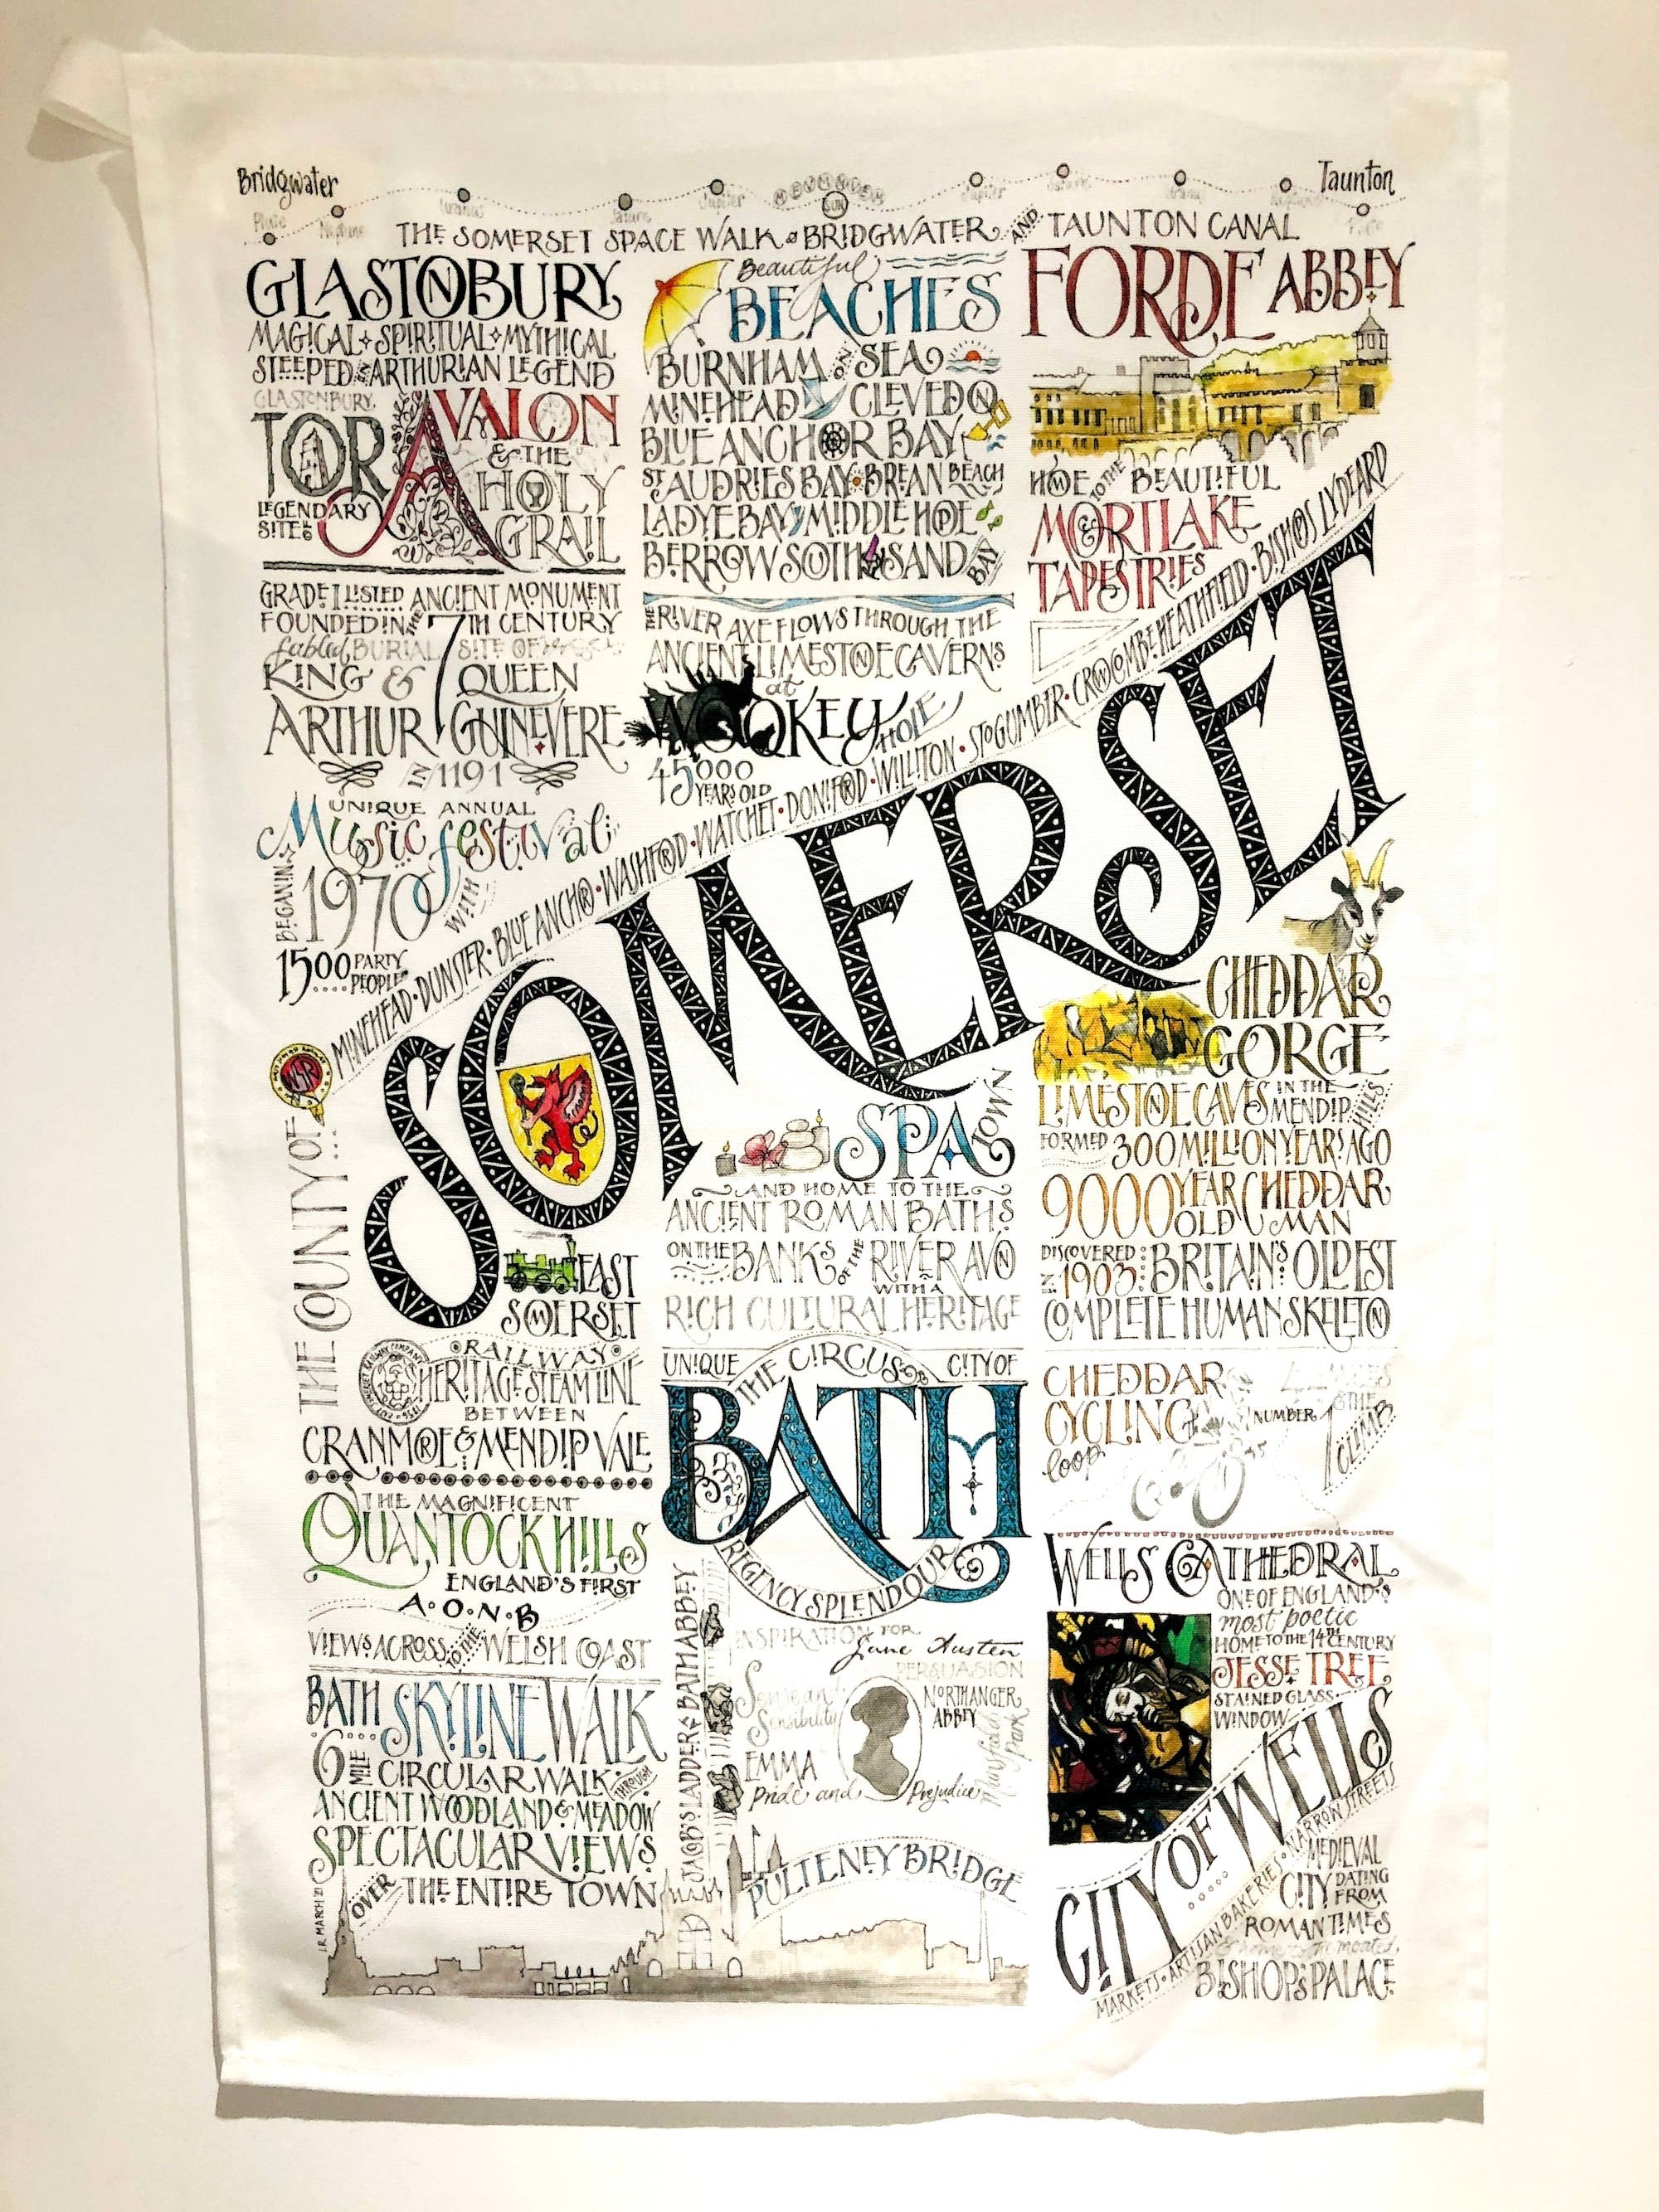 Bridgwater
Taunton
Pluto
Neptune
Uranus
Saturn
Jupiter
SUN
Jupiter
Saturn
Uranus
Neptune
Pluto
THE SOMERSET SPACE WALK BRIDGWATER AND TAUNTON CANAL
GLASTONBURY
MAGICAL SPIRITUAL MYTHICAL
STEEPED IN ARTHURIAN LEGEND
GLASTONBURY
TOR
LEGENDARY
SITE OF
AVALON
& THE
HOLY
GRAIL
GRADE I LISTED ANCIENT MONUMENT
FOUNDED IN THE 7TH CENTURY
fabled BURIAL SITE OF
KING & QUEEN
ARTHUR GUINEVERE
IN 1191
UNIQUE ANNUAL
Music festival
BEGAN IN
1970
WITH
1500 PARTY PEOPLE
Beautiful
BEACHES
BURNHAM ON SEA
MINEHEAD CLEVEDON
BLUE ANCHOR BAY
ST AUDRIES BAY BREAN BEACH
LADYE BAY MIDDLE HOPE
BERROW SOUTH SAND BAY
THE RIVER AXE FLOWS THROUGH THE
ANCIENT LIMESTONE CAVERNS
at
WOOKEY HOLE
45000 YEARS OLD
FORDE ABBEY
HOME TO THE BEAUTIFUL
MORTLAKE
TAPESTRIES
MINEHEAD·DUNSTER·BLUE ANCHOR·WASHFORD·WATCHET·DONIFORD·WILLITON·STOGUMBER·CROWCOMBE HEATHFIELD·BISHOPS LYDEARD
WSR
THE COUNTY OF...
SOMERSET
EAST
SOMERSET
RAILWAY
HERITAGE STEAM LINE
BETWEEN
CRANMORE & MENDIP VALE
THE MAGNIFICENT
QUANTOCK HILLS
ENGLAND'S FIRST
A·O·N·B
VIEWS ACROSS TO THE WELSH COAST
BATH SKYLINE WALK
6 MILE CIRCULAR WALK THROUGH
ANCIENT WOODLAND & MEADOW
SPECTACULAR VIEWS
OVER THE ENTIRE TOWN
SPA TOWN
AND HOME TO THE
ANCIENT ROMAN BATHS
ON THE BANKS OF THE RIVER AVON
WITH A
RICH CULTURAL HERITAGE
UNIQUE
THE CIRCUS
CITY OF
BATH
REGENCY SPLENDOUR
JACOB'S LADDER BATH ABBEY
INSPIRATION FOR
Jane Austen
PERSUASION
Sense and
Sensibility
NORTHANGER
ABBEY
Mansfield Park
EMMA
Pride and Prejudice
PULTENEY BRIDGE
CHEDDAR
GORGE
LIMESTONE CAVES IN THE MENDIP HILLS
FORMED 300 MILLION YEARS AGO
9000 YEAR OLD CHEDDAR MAN
DISCOVERED IN 1903: BRITAIN'S OLDEST
COMPLETE HUMAN SKELETON
CHEDDAR
CYCLING
loop
NUMBER 1
CLIMB
WELLS CATHEDRAL
ONE OF ENGLAND'S
most poetic
HOME TO THE 14TH CENTURY
JESSE TREE
STAINED GLASS
WINDOW
CITY OF WELLS
MARKETS·ARTISAN BAKERIES·NARROW STREETS
MEDIEVAL
CITY DATING FROM
ROMAN TIMES
& home to the moated
BISHOP'S PALACE